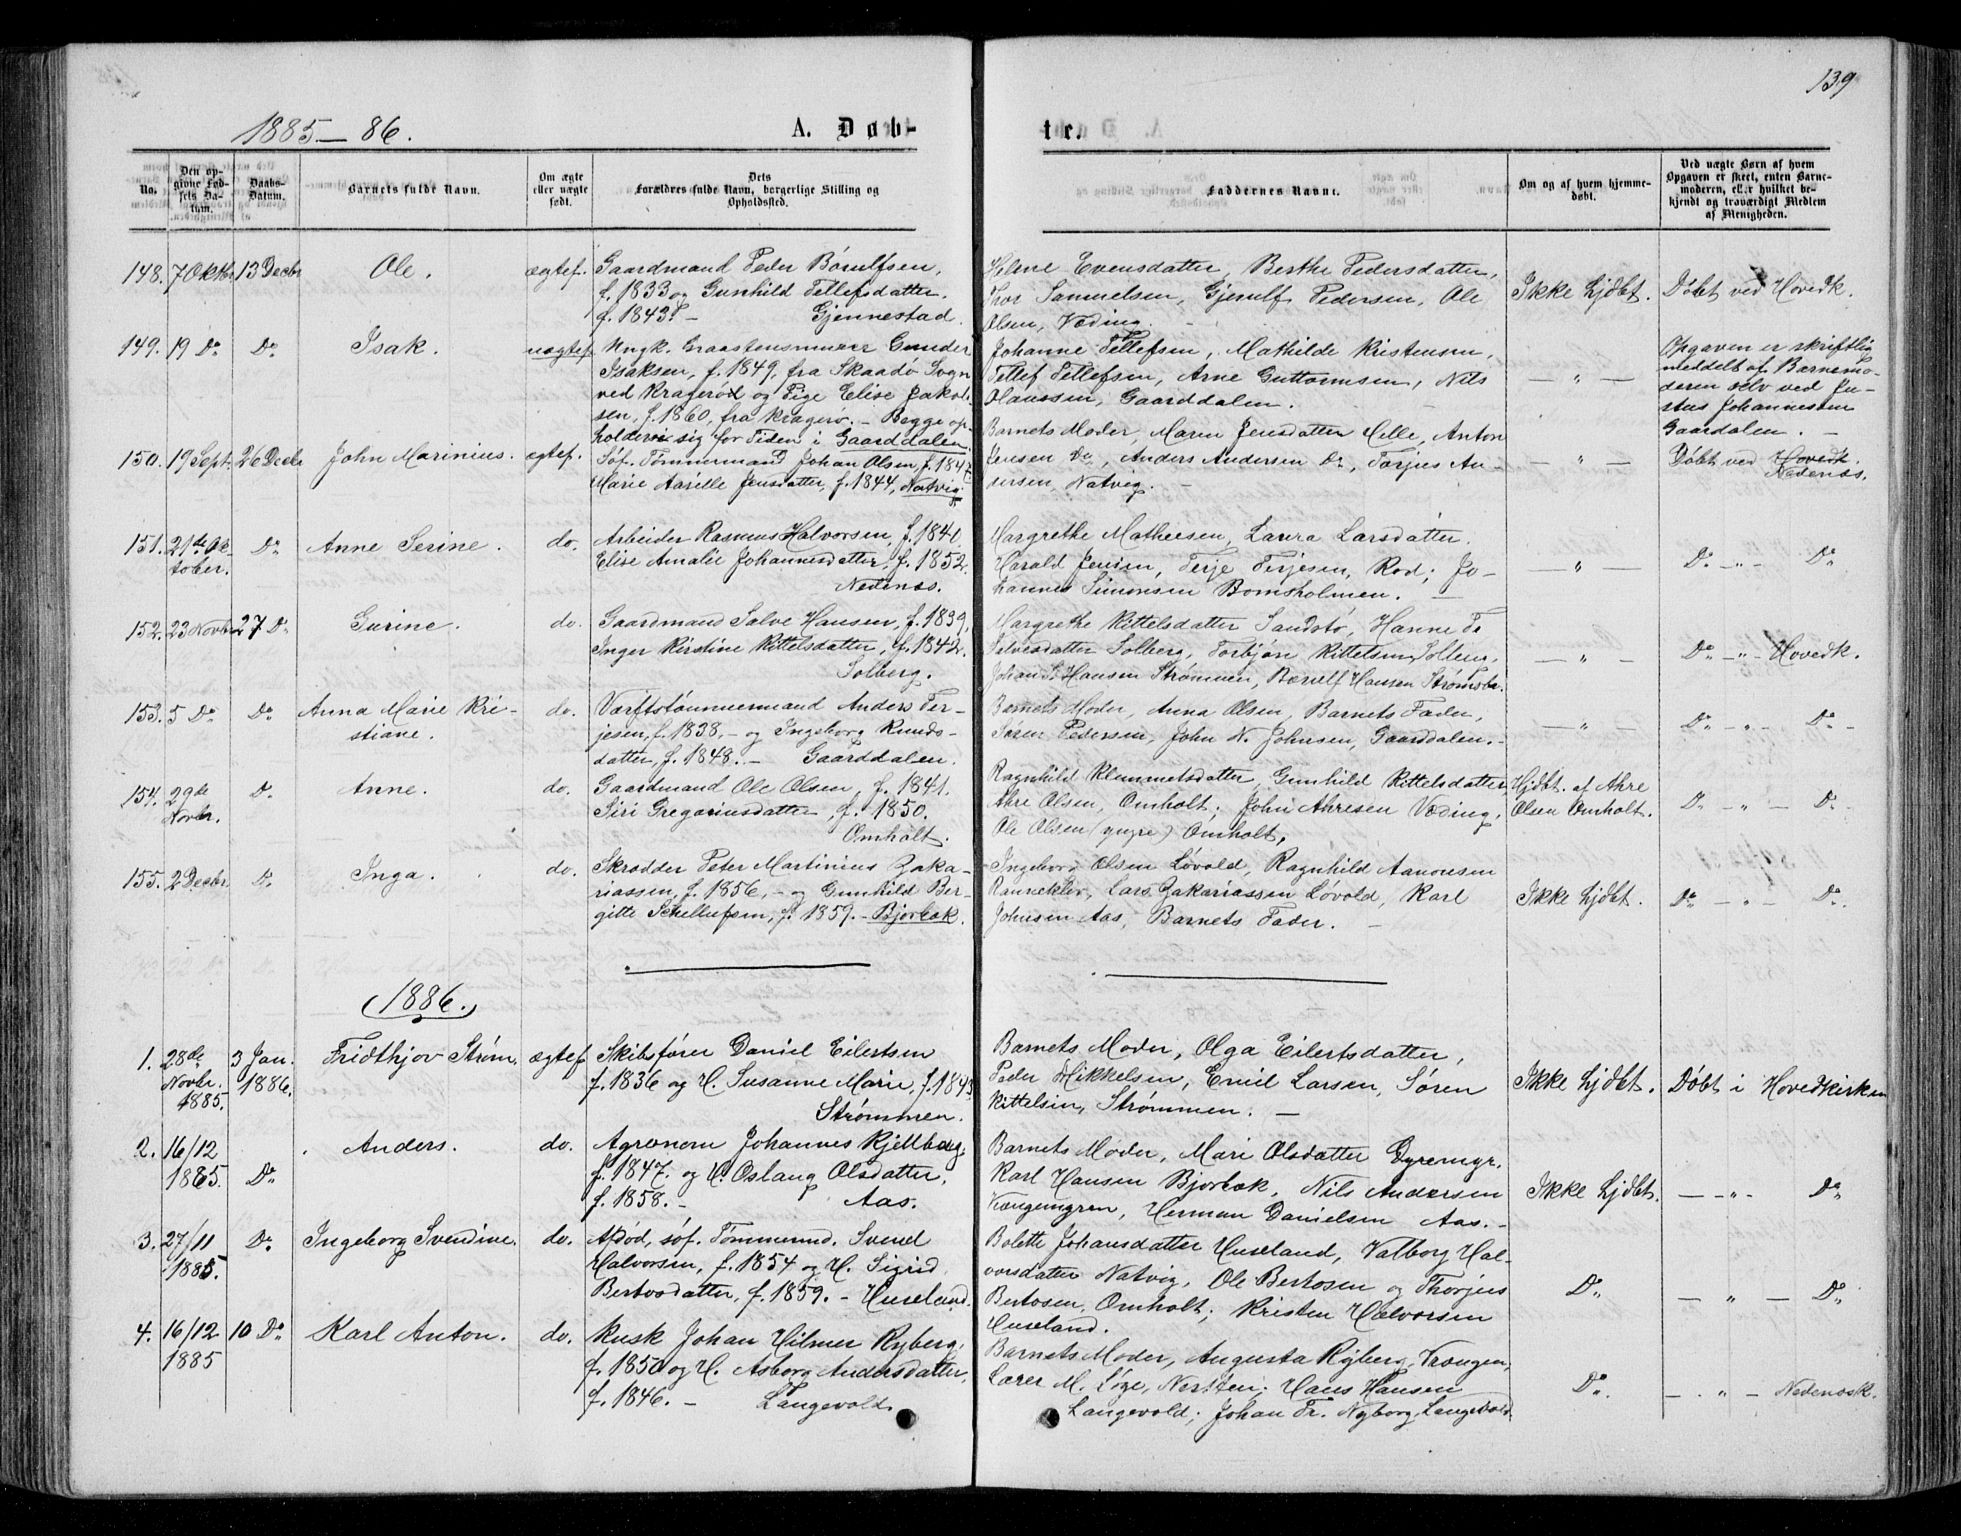 139
1885–86.
A. Døb-
te.
No.
Den op-
givne Fød-
sels Da-
tum.
Daabs-
Datum.
Barnets fulde Navn.
Om ægte
eller uægte
født.
Dets
Forældres fulde Navn, borgerlige Stilling og
Opholdssted.
Faddernes Navne.
Om og af hvem hjemme-
døbt.
Ved uægte Børn af hvem
Opgaven er skeet, enten Barne-
moderen, eller hvilket be-
kjendt og troværdigt Medlem
af Menigheden.
148. 7 Oktbr. 13 Decbr Ole. ægtef.
Gaardmand Peder Børulfsen,
f. 1833 og Gunhild Tellefsdatter.
f. 1843. – Gjennestad.
Helene Evensdatter, Berthe Pedersdatter,
Thor Samuelsen, Gjerulf Pedersen, Ole
Olsen, Væding.
Ikke hjdbt. Døbt ved Hovedk.
149. 19 Do Do Isak. uægtef.
Ungk. Graastensmurer Gunder
Isaksen, f. 1849, fra Skaadø Sogn
ved Kragerø og Pige Elise Jakob-
sen, f. 1860, fra Kragerø. – Begge op-
holder sig for Tiden i Gaarddalen
Johanne Tellefsen, Mathilde Kristensen,
Tellef Tellefsen, Arne Guttormsen, Nils
Olaussen, Gaarddalen.
– " –
Opgaven er skriftlig
meddelt af Barnemo-
deren selv ved Ju-
stus Johannesen
Gaardalen. –
150. 19 Sept. 26 Decbr John Marinius. ægtef.
Søf. Tømmermand Johan Olsen, f. 1847.
Marie Aarelle Jensdatter, f. 1844, Natvig.
Barnets Moder, Maren Jensdatter Helle, Anton
Jensen Do, Anders Andersen Do, Tarjus An-
dersen, Natvig. –
– " – Døbt ved Hovedk.
Nedenæs.
151. 21de Ok-
tober. Do Anne Serine. do.
Arbeider Rasmus Halvorsen, f. 1840.
Elise Amalie Johannesdatter, f. 1852.
Nedenæs.
Margrethe Matheesen, Laura Larsdatter.
Harald Jensen, Terje Terjesen, Rød; Jo-
hannes Simonsen Bomsholmen. –
– " – Do – " – Do
152. 23 Novbr 27 Do Gurine. do.
Gaardmand Salve Hansen, f. 1839,
Inger Kirstine Kittelsdatter, f. 1842.
Solberg.
Margrethe Kittelsdatter Sandstø, Hanne Fr
Salvesdatter Solberg, Torbjørn Kittelsen
Johan Hansen Strømmen, Hansen Strømsbr.
– " – Do – " – Hovedk.
153. 5 Do Do Anna Marie Kri-
stiane. do.
Værftstømmermand Anders Ter-
jesen, f. 1838, – og Ingeborg Knuds-
datter, f. 1848. – Gaarddalen.
Barnets Moder, Anna Olsen, Barnets Fader,
Søren Pedersen, John N. Johnsen, Gaarddalen. –
– " – Do – " – Do –
154. 29de
Novbr. Do Anne. do.
Gaardmand Ole Olsen, f. 1841.
Siri Gregoriusdatter, f. 1850.
Omholt.
Ragnhild Klemmetsdatter, Gunhild Kittelsdatter
Ahre Olsen, Omholt; John Ahresen Væding,
Ole Olsen (yngre) Omholt,
Hjdbt. af Ahre
Olsen Omholt. Do – " – Do
155. 2 Decbr. Do Inga. do.
Skrædder Peter Martinius Zaka-
riassen, f. 1856, – og Gunhild Ber-
gitte Schellufsen, f. 1859. – Bjorbæk.
Ingeborg Olsen Løvold, Ragnhild Aanonsen
Ranneklev, Lars Zakariassen Løvold, Karl
Johnsen Aas, Barnets Fader. –
Ikke hjdbt. Do – " – Do.
(1886.)
1. 28de
Novbr.
1885. 3 Jan.
1886. Fridthjov Strøm. ægtef
Skibsfører Daniel Eilertsen
f. 1836 og H. Susanne Marie, f. 1843.
Strømmen.
Barnets Moder, Olga Eilertsdatter,
Peder Mikkelsen, Emil Larsen, Søren
Kittelsen, Strømmen. –
Ikke hjdbt. Døbt i Hovedkirken
2. 16/12
1885. Do Anders. do.
Agronom Johannes Kjellberg,
f. 1847. og H. Oslaug Olsdatter,
f. 1858. – Aas.
Barnets Moder, Mari Olsdatter Dyremyr.
Karl Hansen Bjorbæk, Nils Andersen
Længemyren, Herman Danielsen Aas. –
Ikke hjdbt. – " – Do
3. 27/11
1885. Do Ingeborg Svendine. do.
Afdød, søf. Tømmermd. Svend
Halvorsen, f. 1854 og H. Sigrid
Bertosdatter, f. 1859. – Huseland.
Bolette Johansdatter Huseland, Valborg Hal-
vorsdatter Natvig, Ole Bertosen og Thorjus
Bertosen, Omholt; Kristen Halvorsen
Huseland.
Do. – " – Do
4. 16/12
1885 10 Do Karl Anton. do.
Kusk Johan Hilmer Ryberg,
f. 1850 og H. Asborg Andersdatter,
f. 1846. – Langevold.
Barnets Moder, Augusta Ryberg,
Lærer M. Løge, Nersten; Hans Hansen
Langevold; Johan Fr. Nyborg, Langevold.
Do. – " – Nedenæsk.